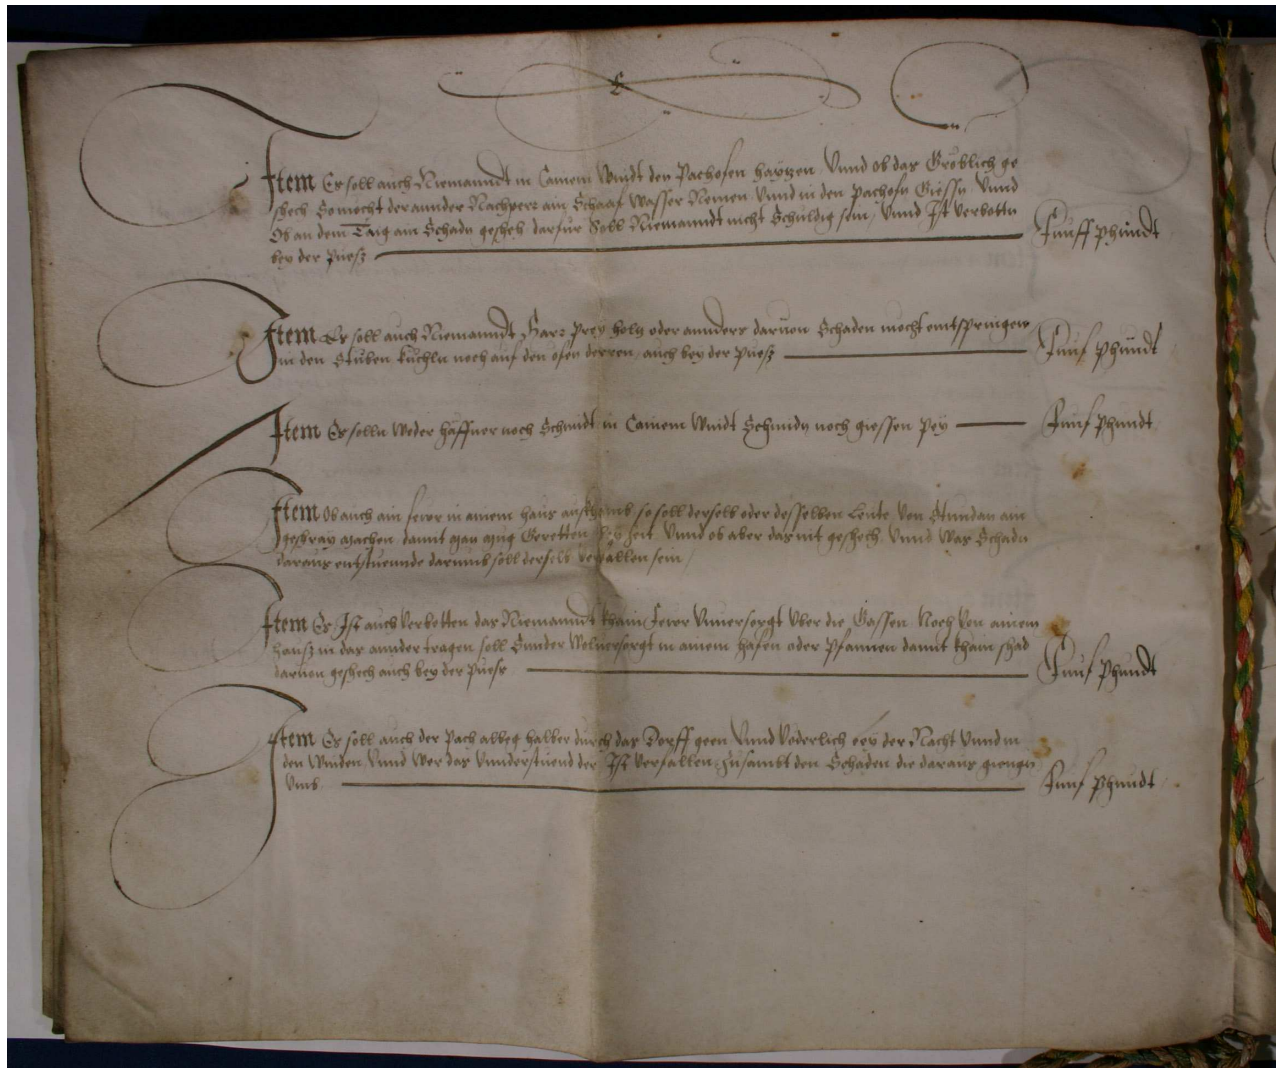 Item Es soll auch Niemanndt in Cainem Windt den Pachofen haytzen Vnnd ob das Gröblich ge
shech So mocht der annder Nachper ain Schaaf Wasser Nemen Vnnd in den Pachofn Giessn Vnnd
Ob an dem Taig ain Schadn geshech darfur Soll Niemanndt nicht Schuldig sein, Vnnd Ist verbottn
bey der Puesz Funff Phundt
Item Es soll auch Niemanndt Har Prey holtz oder annders daruon Schaden mocht enntspringen
in den Stuben Kuchln noch auf den ofen derren, auch bey der Puesz Funf Phundt
Item Es solln Weder haffner noch Schmidt in Cainem Windt Schmidn noch giessen Pey Funf Phundt
Item Ob auch ain feier in ainem haus auskhomb so soll derselb oder desselben Leute Von Stundan ain
geshray machen damit man mug Geretten bey Zeit Vnnd ob aber das nit geshech Vnnd Was Schadn
daraus entstuennde darumb soll derselb verfallen sein,
Item Es Ist auch Verbotten das Niemanndt khain Feier Vnuersorgt Vber die Gassen Noch Von ainem
hausz in das annder tragen soll Sunder Wolversorgt in ainem hafen oder Pfannen damit khain shad
daruon geshech auch bey der Puess Funf Phundt
Item Es soll auch der Pach albeg halber durch das Dorff geen Vnnd Voderlich bey der Nacht Vnnd in
den Winden, Vnnd Wer das Vnnderstuend der Ist Verfallen Zusambt den Schaden die daraus giengn
Vmb Funf Phundt